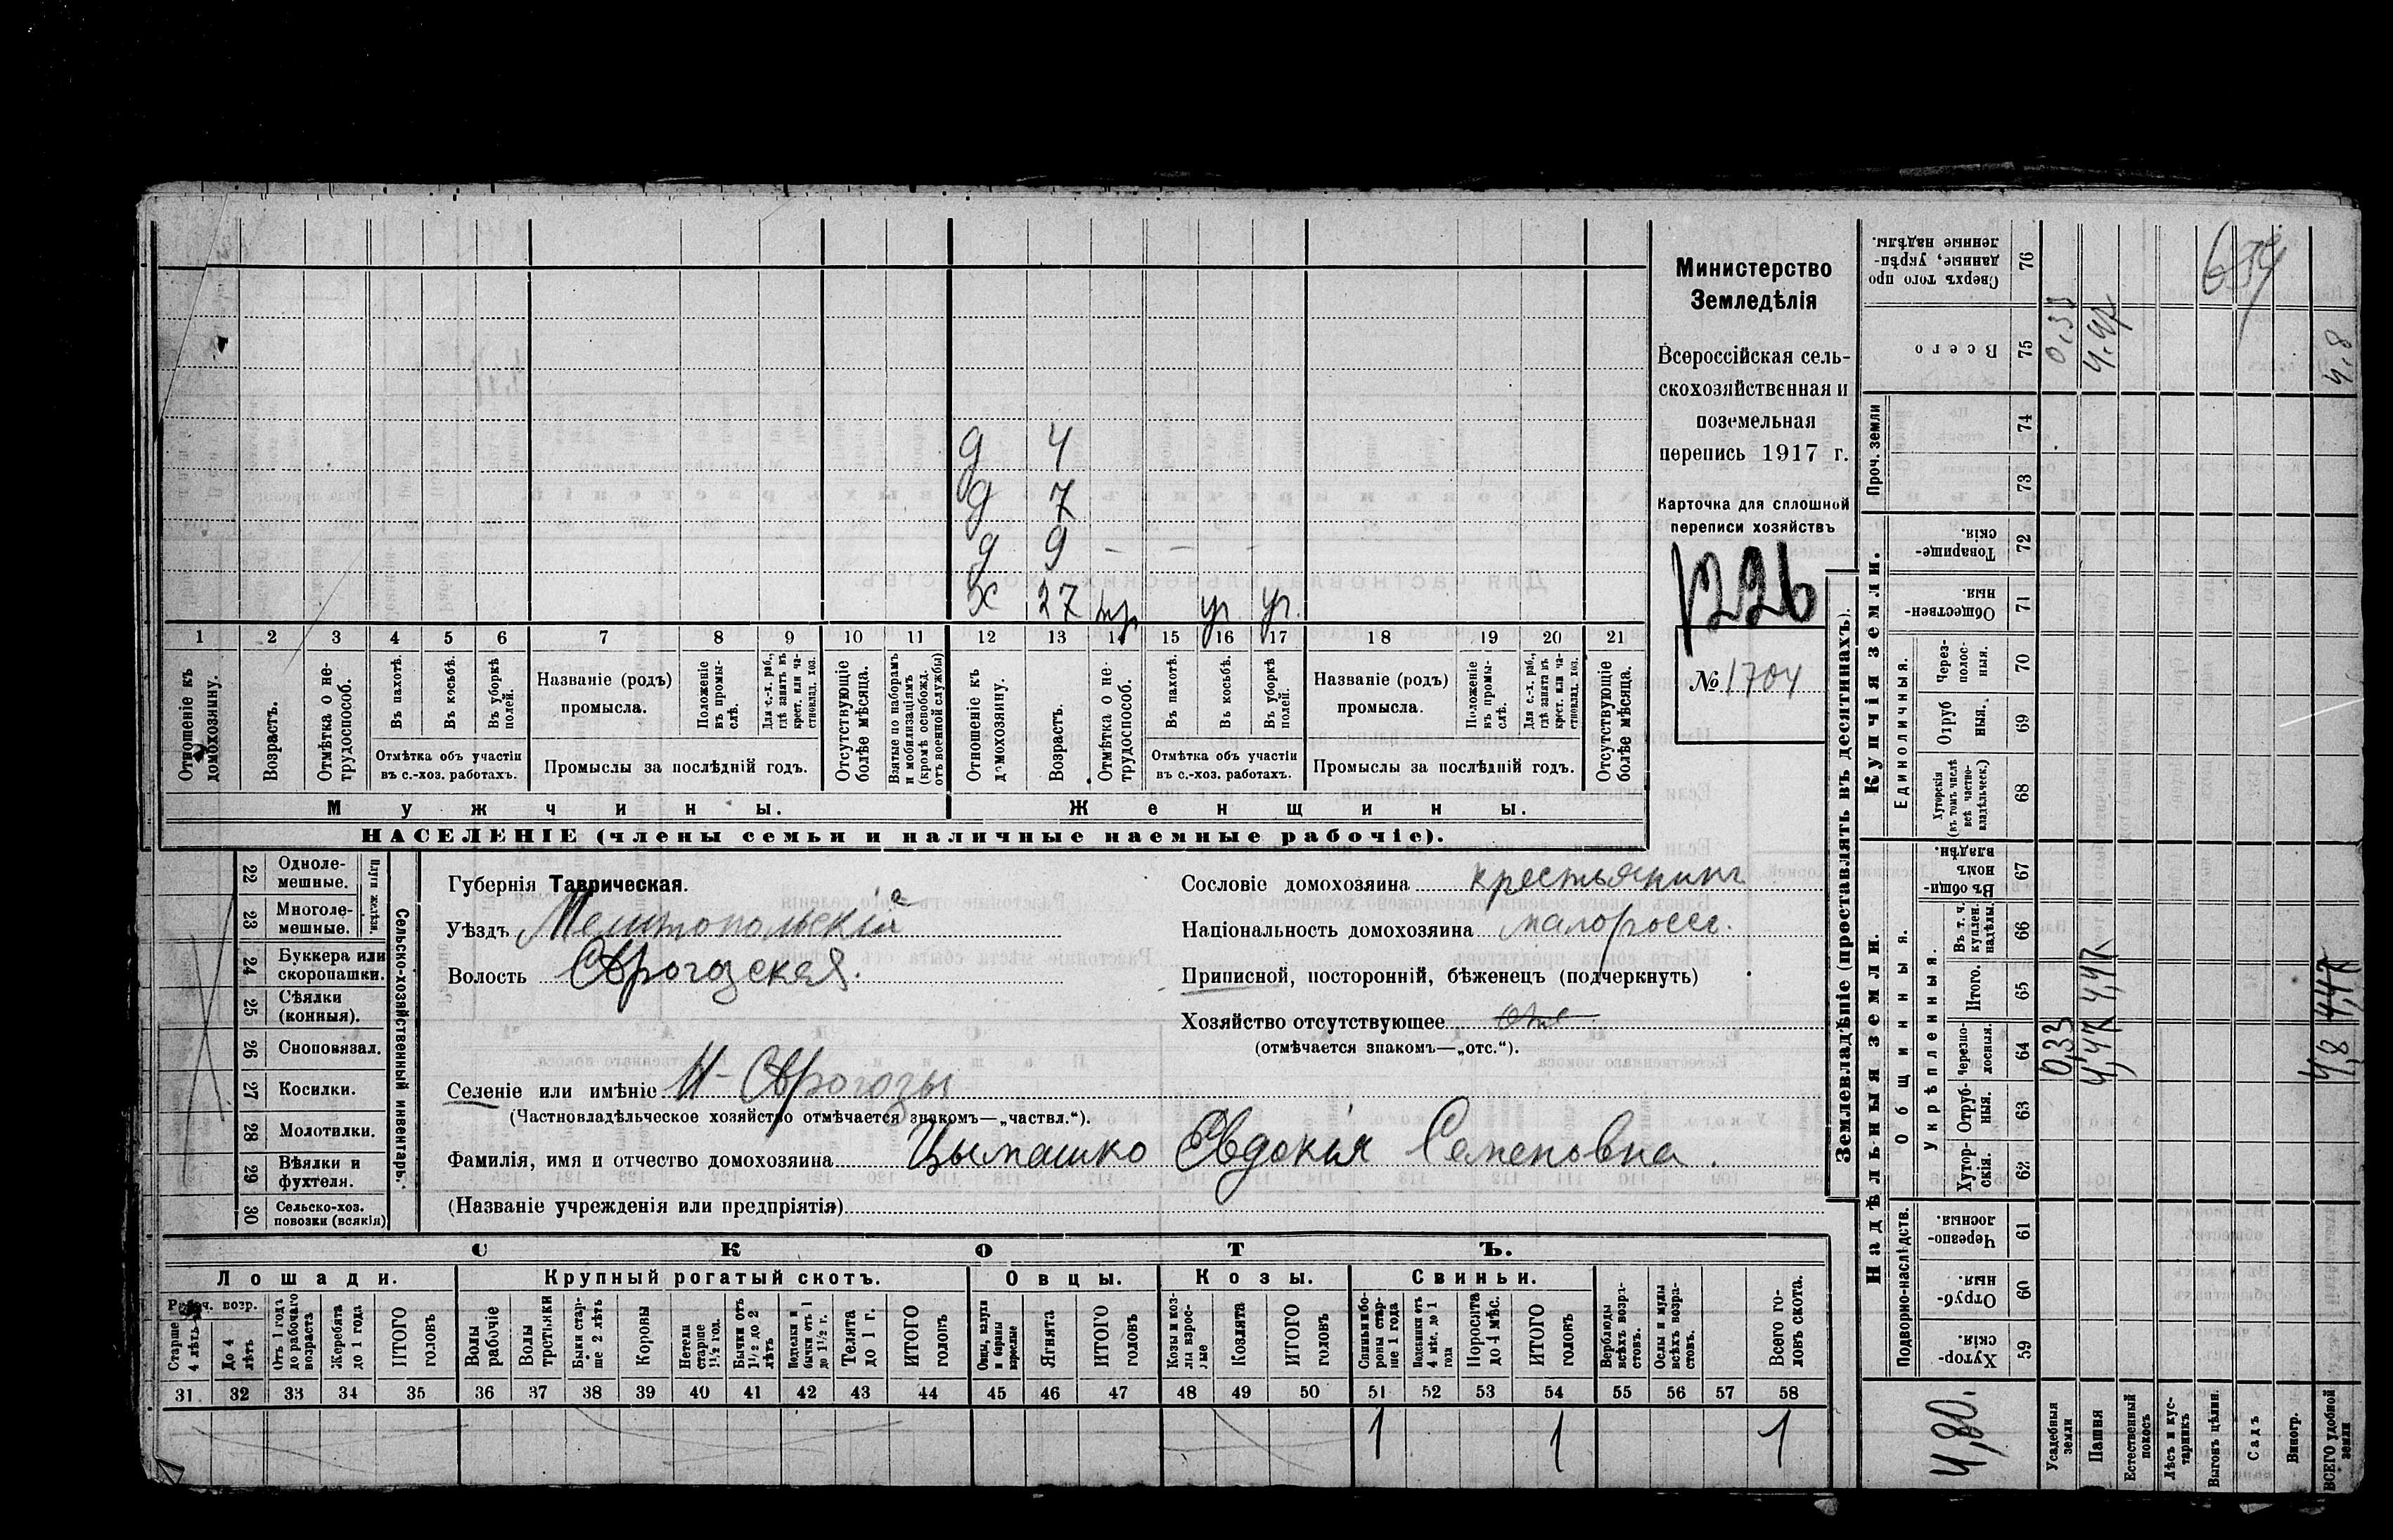 Министерство
Земледѣлія
Всероссійская сель-
скохозяйственная и
поземельная
перепись 1917 г.
Карточка для сплошной
переписи хозяйствъ
1226
№ 1704
д 4
д 7
д 9 - - -
х 27 ур. ур.
1 2 3 4 5 6 7 8 9 10 11 12 13 14 15 16 17 18 19 20 21
Отношеніе къ домохозяину.
Возрастъ.
Отмѣтка о не-трудоспособ.
Въ пахотѣ.
Въ косьбѣ.
Въ уборкѣ полей.
Отмѣтка объ участіи
въ с.-хоз. работахъ.
Названіе (родъ)
промысла.
Положеніе въ промы-слѣ.
Для с.-х. раб., гдѣ занятъ въ крест. или ча-стновлад. хоз.
Промыслы за послѣдній годъ.
Отсутствующіе болѣе мѣсяца.
Взятые по наборамъ и мобилизаціямъ (кромѣ освобожд. отъ военной службы)
Отношеніе къ домохозяину.
Возрастъ.
Отмѣтка о не-трудоспособ.
Въ пахотѣ.
Въ косьбѣ.
Въ уборкѣ полей.
Отмѣтка объ участіи
въ с.-хоз. работахъ.
Названіе (родъ)
промысла.
Положеніе въ промы-слѣ.
Для с.-х. раб., гдѣ занята въ крест. или ча-стновлад. хоз.
Промыслы за послѣдній годъ.
Отсутствующіе болѣе мѣсяца.
Мужчины. Женщины.
НАСЕЛЕНІЕ (члены семьи и наличные наемные рабочіе).
22 Одноле-мешные.
23 Многоле-мешные.
Плуги желѣзн.
24 Буккера или скоропашки.
25 Сѣялки (конныя).
26 Сноповязал.
27 Косилки.
28 Молотилки.
29 Вѣялки и фухтеля.
30 Сельско-хоз. повозки (всякія)
Сельско-хозяйственный инвентарь.
Губернія Таврическая.
Уѣздъ Мелитопольскій
Волость
Селеніе или имѣніе
(Частновладѣльческое хозяйство отмѣчается знакомъ—„частвл.“).
Фамилія, имя и отчество домохозяина Цымашко Евдокія Семеновна.
(Названіе учрежденія или предпріятія)
Сословіе домохозяина крестьянинъ
Національность домохозяина малоросс.
Приписной, посторонній, бѣженецъ (подчеркнуть)
Хозяйство отсутствующее
(отмѣчается знакомъ—„отс.“).
СКОТЪ.
Лошади. Крупный рогатый скотъ. Овцы. Козы. Свиньи.
Рабоч. возр.
Старше 4 лѣтъ
До 4 лѣтъ
Отъ 1 года до рабочаго возраста
Жеребята до 1 года
ИТОГО головъ
Волы рабочіе
Волы третьяки
Быки стар-ше 2 лѣтъ
Коровы
Нетели старше 1½ год.
Бычки отъ 1½ до 2 лѣтъ
Подтелки и бычки отъ 1 до 1½ г.
Телята до 1 г.
ИТОГО головъ
Овцы, валухи и бараны взрослые
Ягнята
ИТОГО головъ
Козы и коз-лы взрос-лые
Козлята
ИТОГО головъ
Свиньи и бо-ровы стар-ше 1 года
Подсвинки отъ 4 мѣс. до 1 года
Поросята до 4 мѣс.
ИТОГО головъ
Верблюды всѣхъ возра-стовъ.
Ослы и мулы всѣхъ возра-стовъ.
Всего го-ловъ скота.
31 32 33 34 35 36 37 38 39 40 41 42 43 44 45 46 47 48 49 50 51 52 53 54 55 56 57 58
1 1 1
Землевладѣніе (проставлять въ десятинахъ).
Купчія земли.
Надѣльныя земли.
Сверхъ того про-данные, укрѣп-ленные надѣлы. 76
Всего 75 0,33 4,47 4,8
Проч. земли 74 73
Товарище-скія. 72
Обществен-ныя. 71
Единоличныя.
Через-полос-ныя. 70
Отруб-ныя. 69
Хуторскія (въ томъ числѣ всѣ частно-владѣльческ.) 68
Общинныя.
Въ общи-номъ владѣн. 67
Укрѣпленныя.
Въ т. ч. куплен. надѣлы. 66
Итого. 65 4,47
Черезпо-лосныя. 64 0,33 4,47 4,8
Отруб-ныя. 63
Хутор-скія. 62
Подворно-наслѣдств.
Черезпо-лосныя. 61
Отруб-ныя. 60
Хутор-скія. 59
4,80.
Усадебныя земли
Пашня
Естественный покосъ
Лѣсъ и кус-тарникъ
Выгонъ цѣлин.
Садъ
Виногр.
ВСЕГО удобной земли